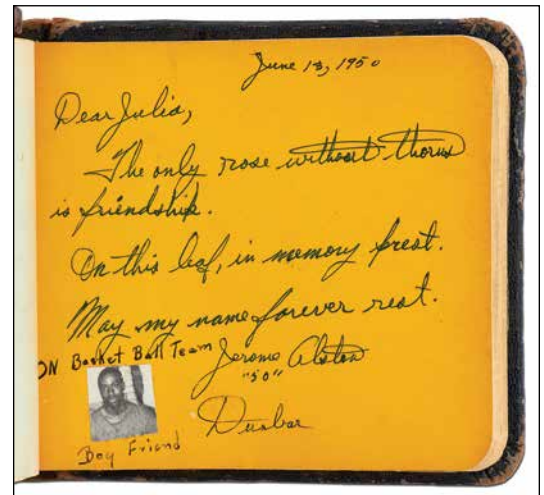 June 13, 1950
Dear Julia,
The only rose without thorns
is friendship.
On this leaf, in memory prest.
May my name forever rest.
ON Basket Ball Team
Jerome Alston
"50"
Dunbar
Boy Friend